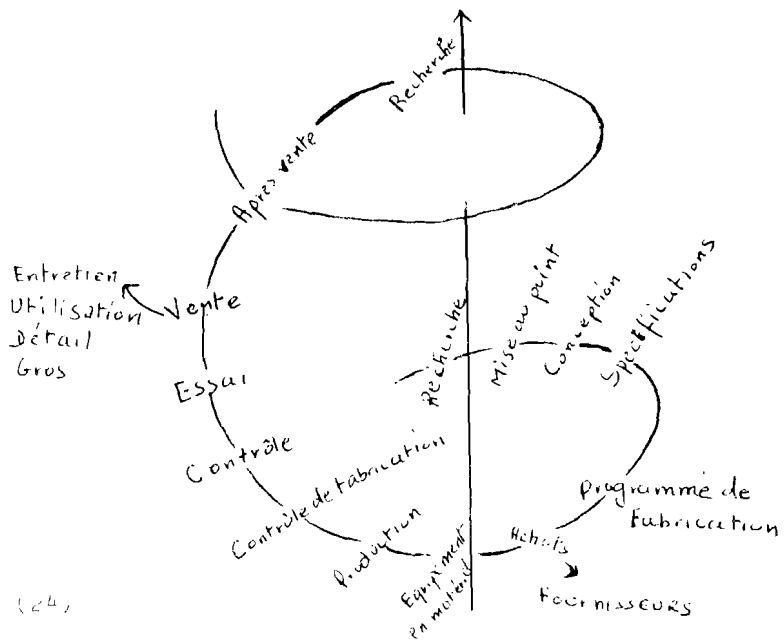 Recherche
Après vente
Entretien
Utilisation
Détail
Gros
Vente
Essai
Contrôle
Contrôle de fabrication
Production
Equipement
en matériel
Achats
FOURNISSEURS
Programme de
Fabrication
Spécifications
Conception
Mise au point
Recherche